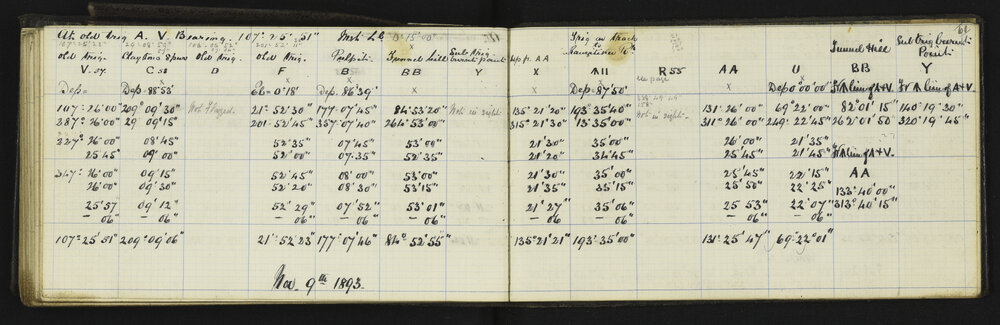 At old Trig A. V. Bearing. 107°-25'-51" Inst L.C. 13°-15'-00"
Trig on Track to
62
107°-25'-23"
old Trig. Old Trig. Tunnel Hill Sub Trig
Tunnel Hill
V.  C  D  F  B  BB  Y  X  AII  R55  AA  U  BB  Y
Dep=  Dep=88°53'  Eb=0°18'  Dep. 86°39'  x  x  Dep=87°50'  Dep 0°00'00"
107°-26'00"  209°09'30"  Not flagged.  21°-52'30"  177°07'45"  84°53'20"  Not in sight  135°21'20"  193°35'40"  Not in sight  131°26'00"  69°22'00"  82°01'15"  140°19'30"
287°26'00"  29°09'15"  201°52'45"  357°07'40"  264°53'00"  315°21'30"  13°35'00"  311°26'00"  249°22'45"  262°01'50"  320°19'45"
327°26'00"  08'45"  52'35"  07'45"  53'00"  21'30"  35'00"  26'00"  21'35"
25'45"  09'00"  52'00"  07'35"  52'35"  21'20"  34'45"  25'45"  21'45"
347°26'00"  09'15"  52'45"  08'00"  53'00"  21'30"  35'00"  25'45"  22'15"  AA
26'00"  09'30"  52'20"  08'30"  53'15"  21'35"  35'15"  25'50"  22'25"  133°40'00"
25'57  09'12"  52'29"  07'52"  53'01"  21'27"  35'06"  25 53"  22'07"  313°40'15"
— 06"  — 06"  — 06"  — 06"  — 06"  — 06  — 06  — 06"  — 06"
107°25'51"  209°09'06"  21°52'23"  177°07'46"  84°52'55"  135°21'21"  193°35'00"  131°25'47"  69°22'01"
Nov. 9th 1893.